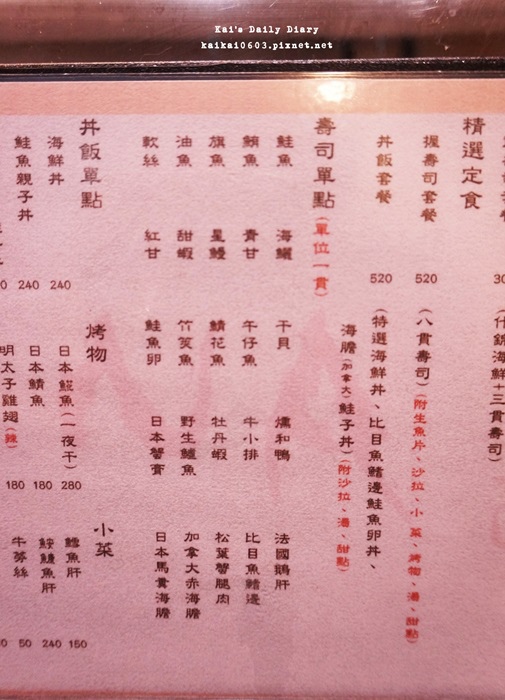 Kai's Daily Diary
kaikai0603.pixnet.net
什錦海鮮十三貫壽司)
精選定食
握壽司套餐
520
(八貫壽司)(附生魚片、沙拉、小菜、烤物、湯、甜點)
丼飯套餐
520
(特選海鮮丼、比目魚鰭邊鮭魚卵丼、
海膽(加拿大)鮭子丼)(附沙拉、湯、甜點)
壽司單點(單位一貫)
鮭魚 海鱺 干貝 燻和鴨 法國鵝肝
鮪魚 青甘 午仔魚 牛小排 比目魚鰭邊
旗魚 星鰻 鯖花魚 牡丹蝦 松葉蟹腿肉
油魚 甜蝦 竹筴魚 野生鱸魚 加拿大赤海膽
軟絲 紅甘 鮭魚卵 日本蟹膏 日本馬糞海膽
丼飯單點
海鮮丼 240
鮭魚親子丼 240
烤物
日本𩸽魚(一夜干) 280
日本鯖魚 180
明太子雞翅(辣) 180
小菜
鱈魚肝 150
鮟鱇魚肝 240
牛蒡絲 50